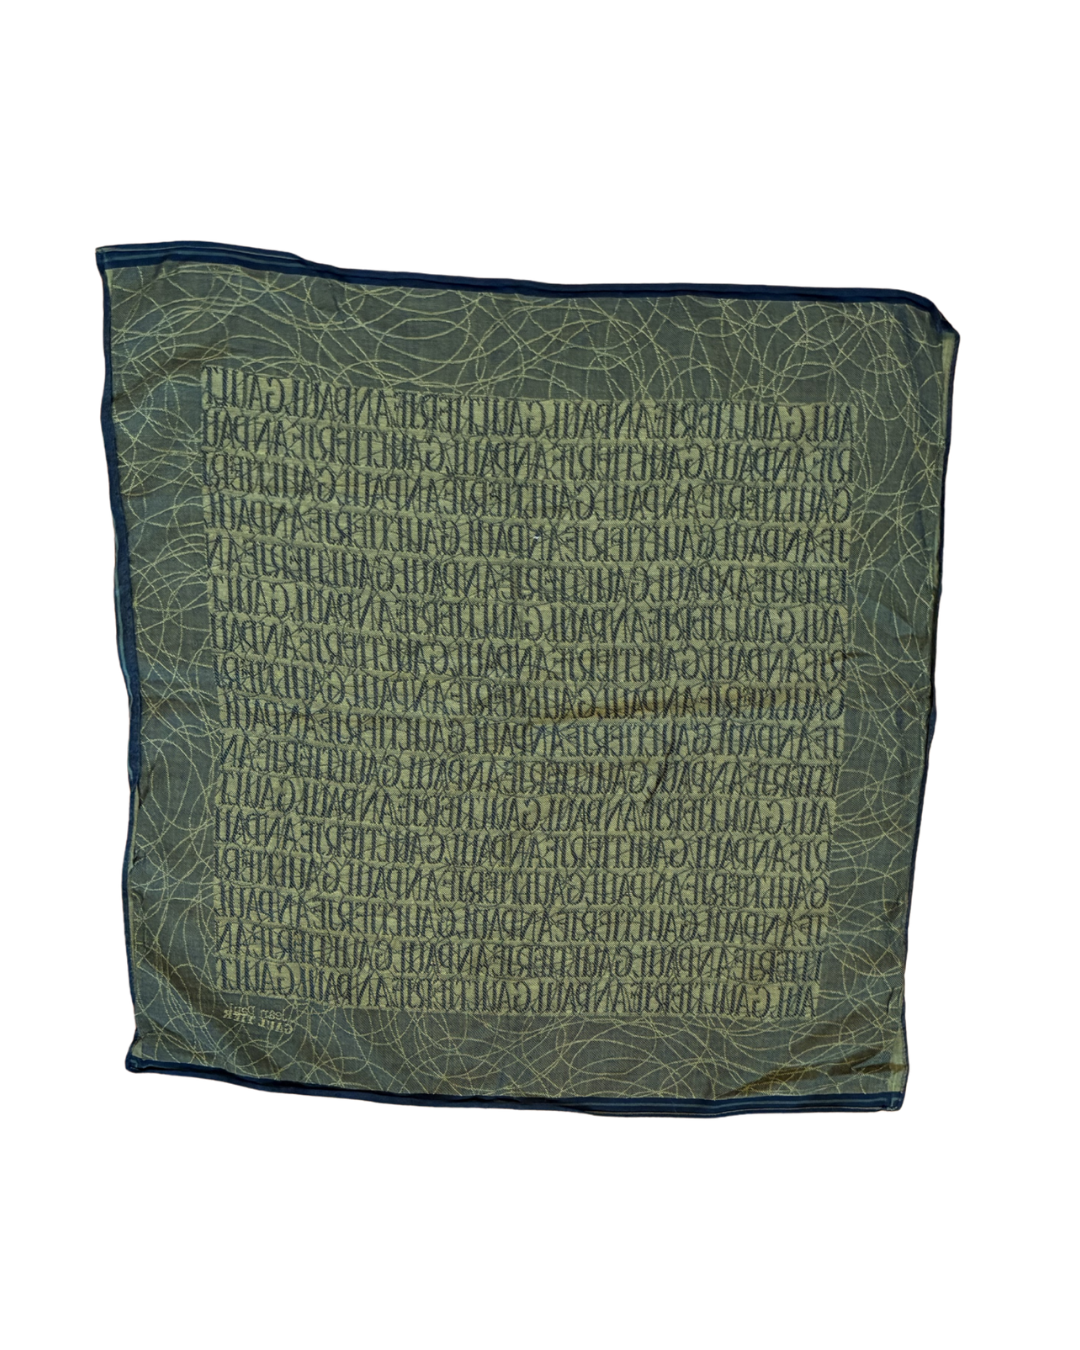 AULGAULTIERJEANPAULGAULTIERJEANPAULGAULT
RJEANPAULGAULTIERJEANPAULGAULTIERJEANPAU
GAULTIERJEANPAULGAULTIERJEANPAULGAULTIER
JEANPAULGAULTIERJEANPAULGAULTIERJEANPAU
LTIERJEANPAULGAULTIERJEANPAULGAULTIERJEAN
AULGAULTIERJEANPAULGAULTIERJEANPAULGAULT
RJEANPAULGAULTIERJEANPAULGAULTIERJEANPAU
GAULTIERJEANPAULGAULTIERJEANPAULGAULTIER
JEANPAULGAULTIERJEANPAULGAULTIERJEANPAU
LTIERJEANPAULGAULTIERJEANPAULGAULTIERJEAN
AULGAULTIERJEANPAULGAULTIERJEANPAULGAULT
RJEANPAULGAULTIERJEANPAULGAULTIERJEANPAU
GAULTIERJEANPAULGAULTIERJEANPAULGAULTIER
JEANPAULGAULTIERJEANPAULGAULTIERJEANPAU
LTIERJEANPAULGAULTIERJEANPAULGAULTIERJEAN
AULGAULTIERJEANPAULGAULTIERJEANPAULGAULT
Jean Paul
GAULTIER